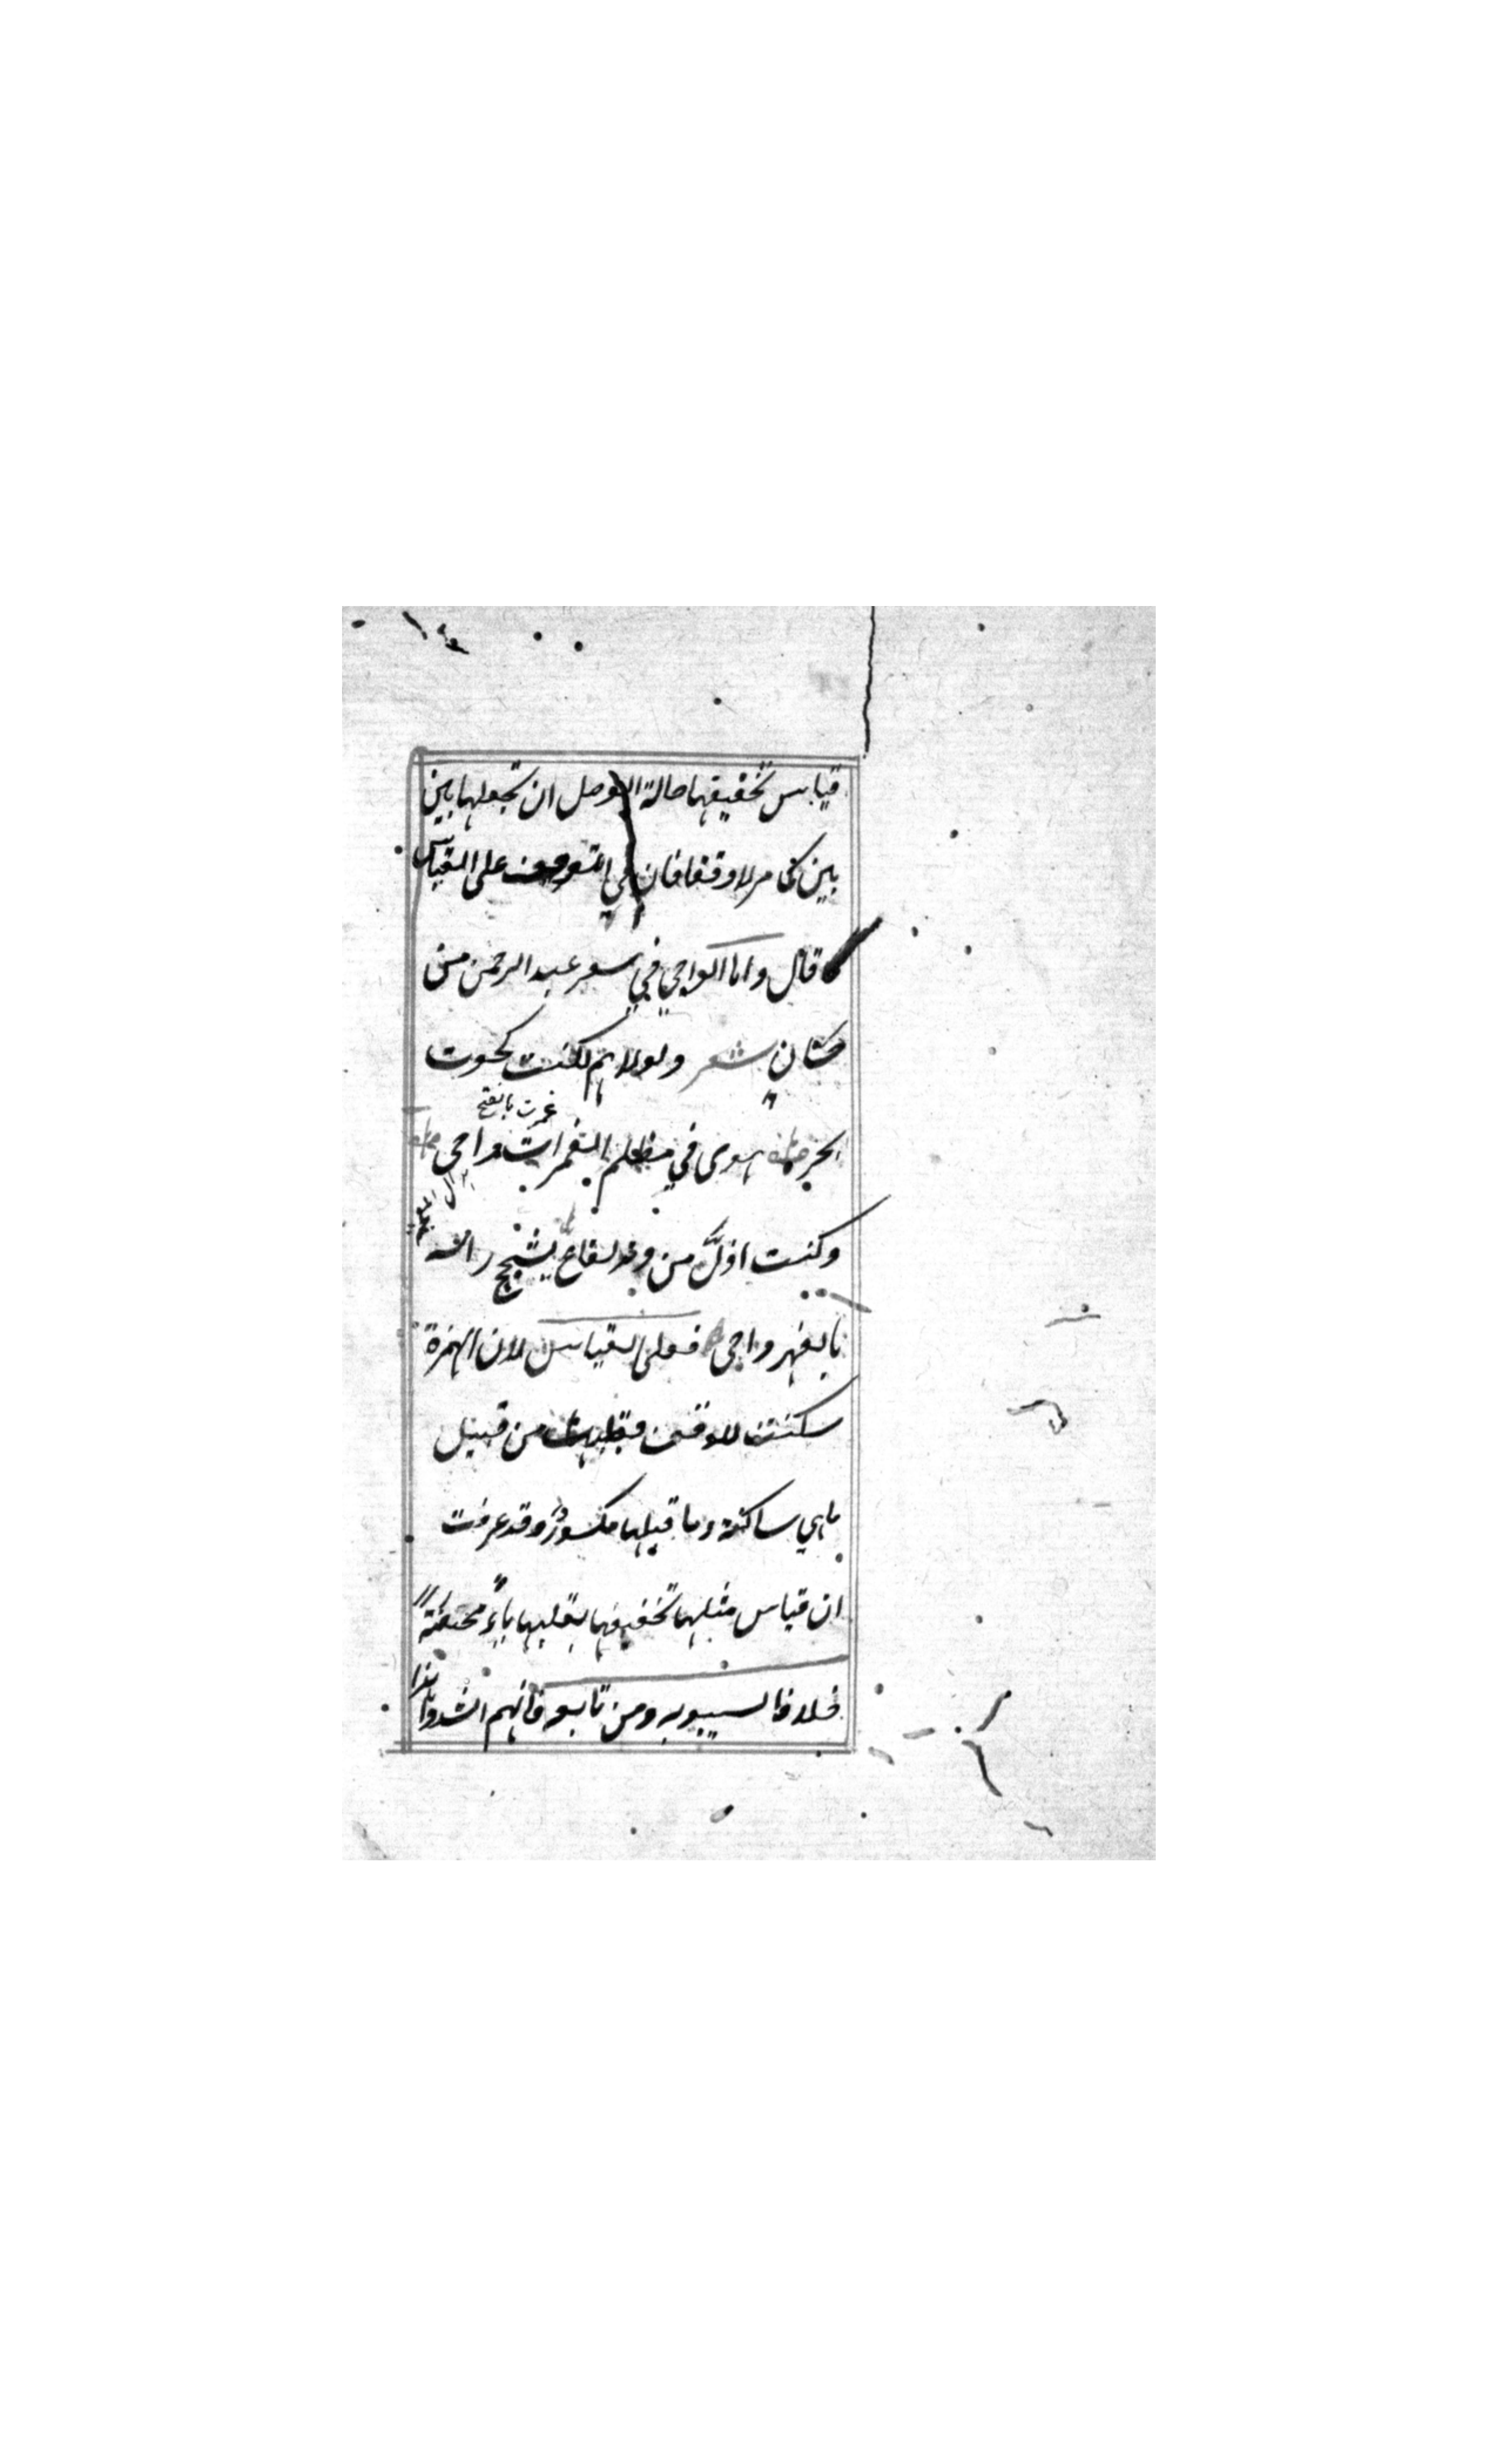 قياس تخفيفها حالة الوصل ان تجعلها بين
بين كما مر لا وقفا فان في الوقف على القياس
قال واما الواجي في شعر عبد الرحمن من
حسان شعر ولولاهم لكنت كحوت
بحر هوى في مظلم الغمرات واجي
غمرت بالفتح
وكنت اذل من وتد بقاع يشجج راسه
بالفهر واجي فعلى القياس لان الهمزة
سكنت للوقف من قبيل
ما هي ساكنة وما قبلها مكسور وقد عرفت
ان قياس مثلها تخفيفها بقلبها ياءً محضةً
خلافا لسيبويه ومن تابعه فانهم انشدوا